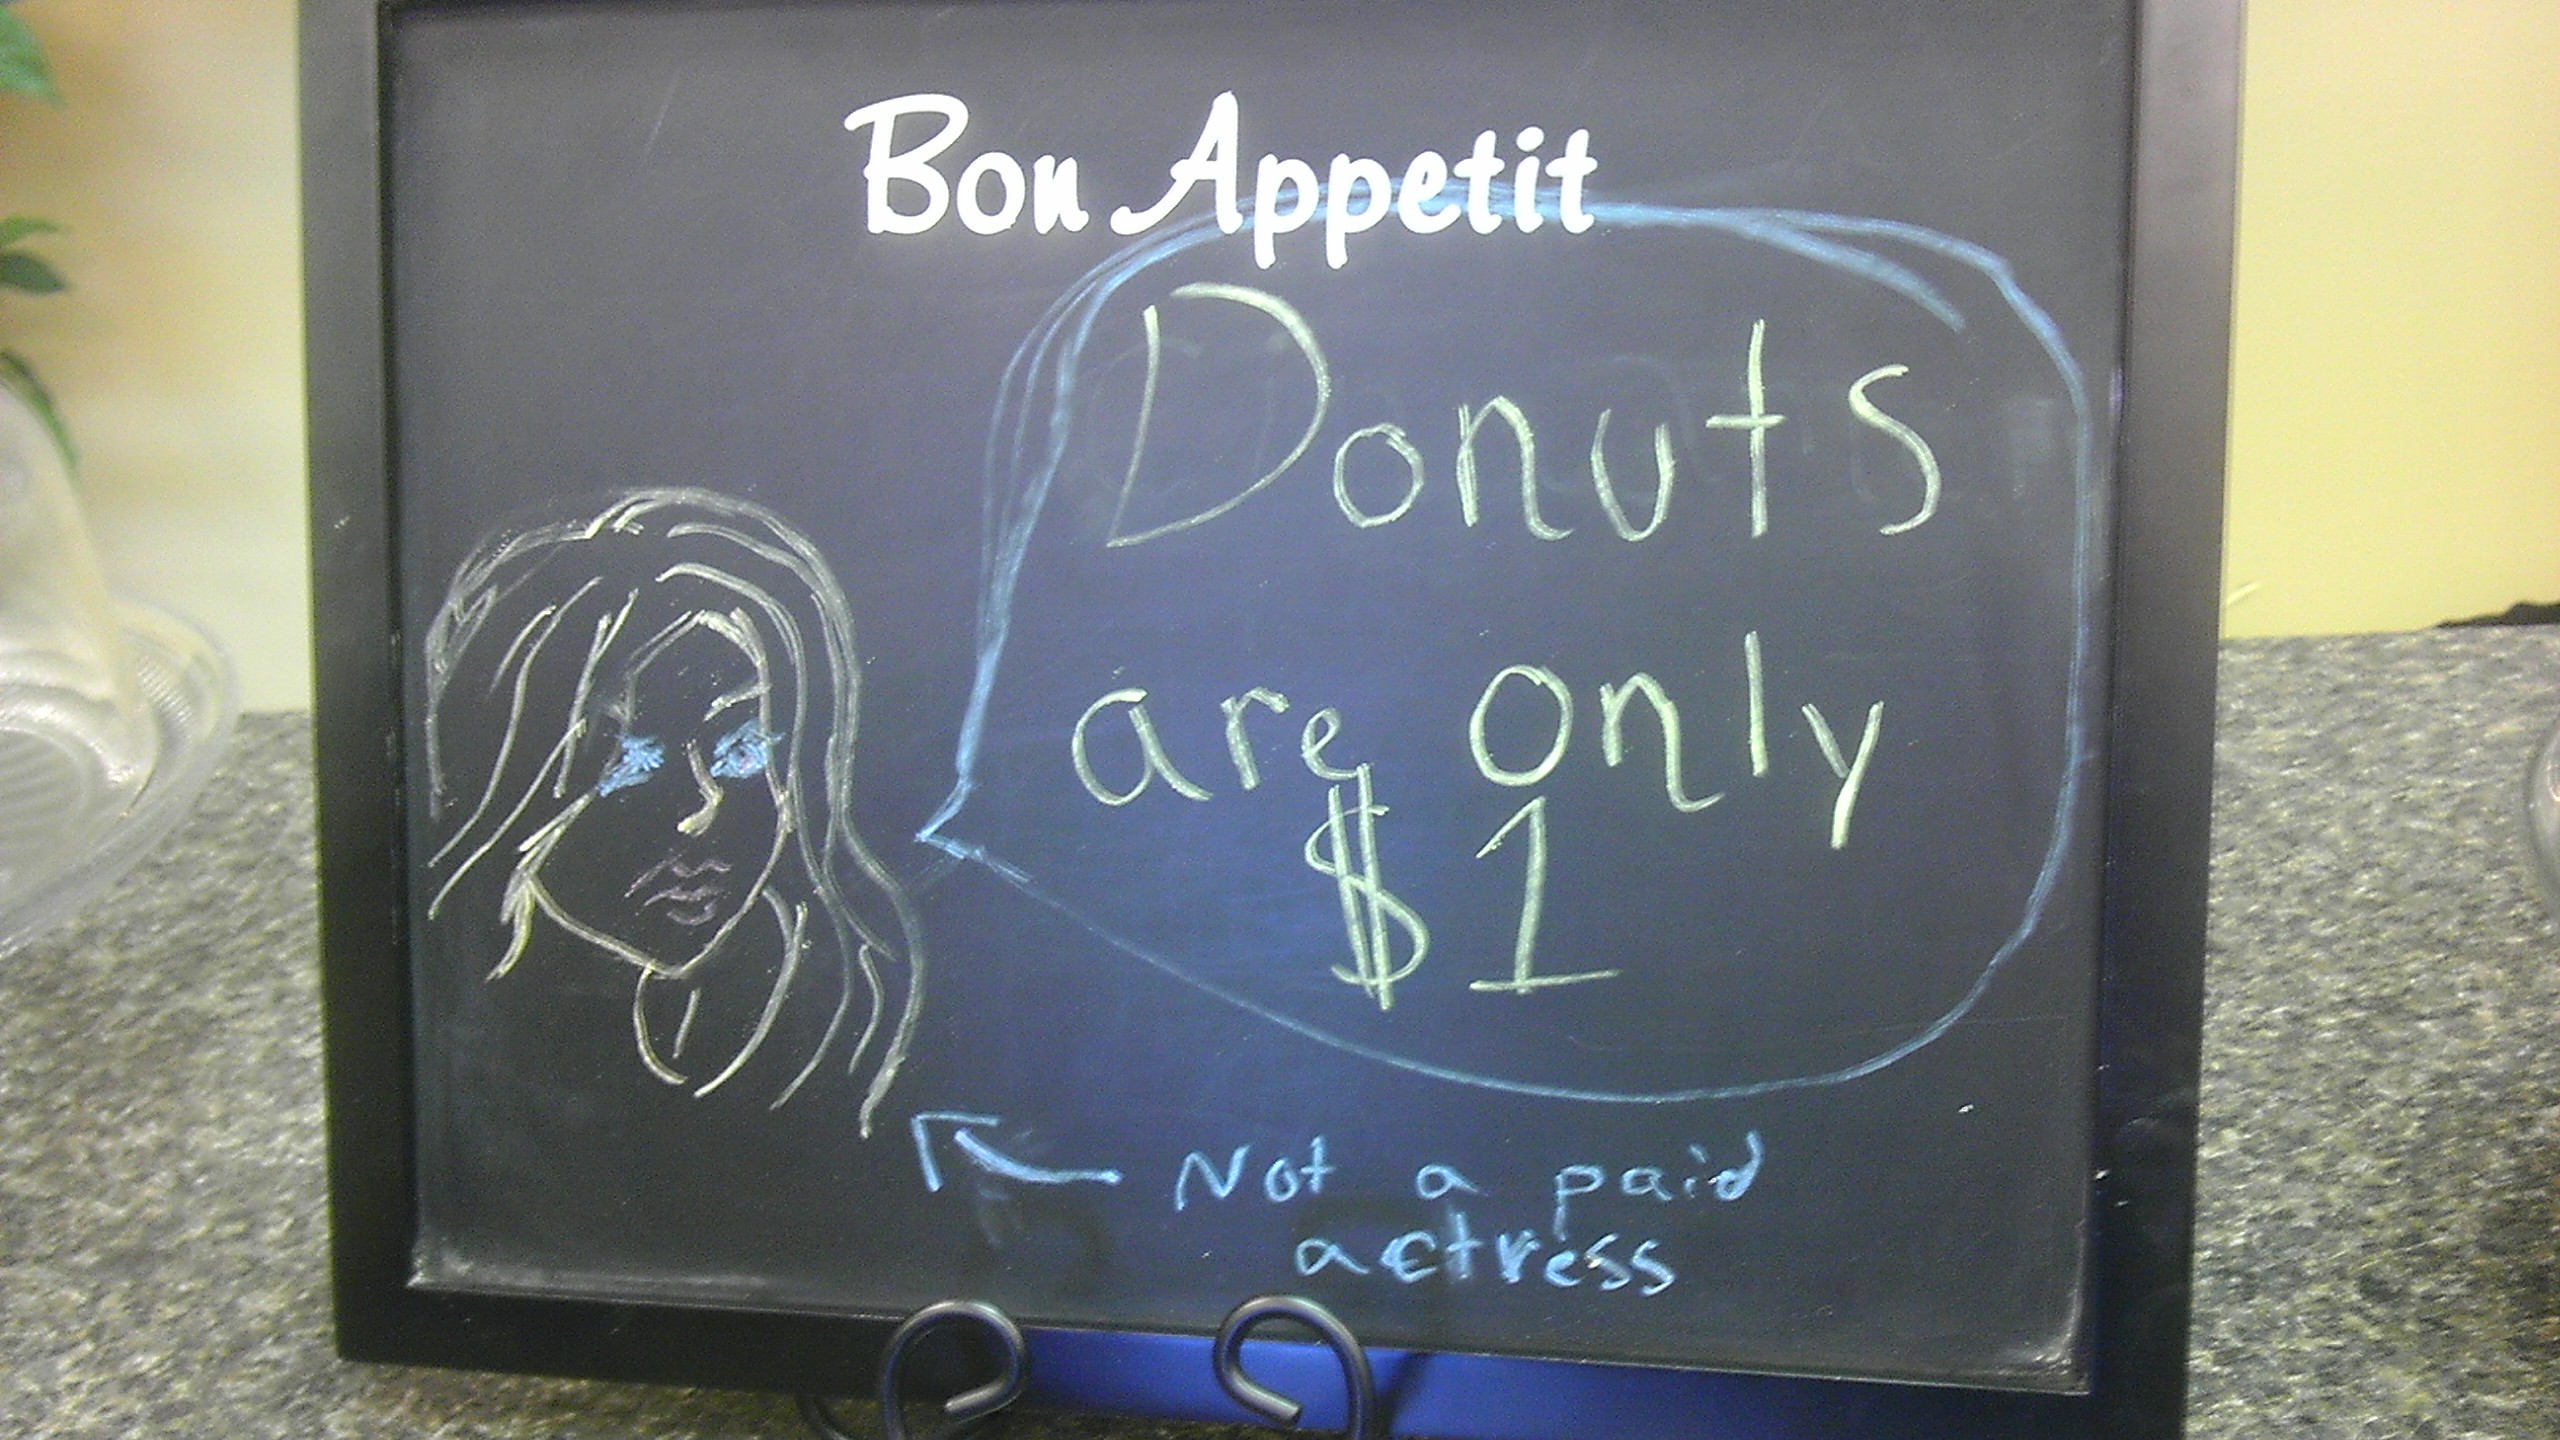 Bon Appetit
Donuts
are only
$1
Not a paid
actress